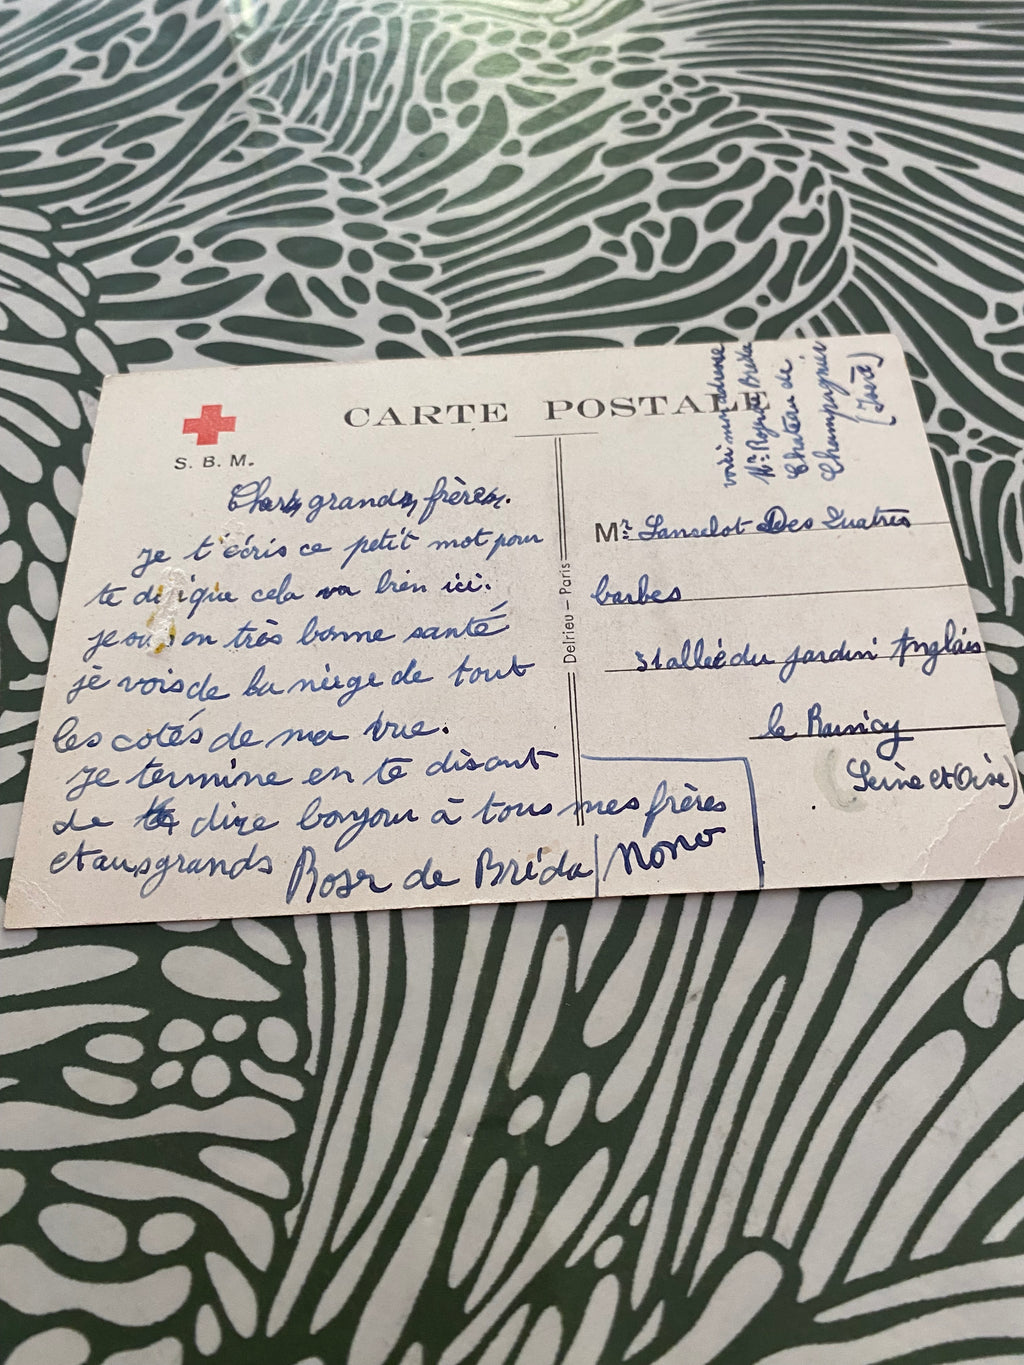 CARTE POSTALE
S. B. M.
Chers grands frères.
Je t'écris ce petit mot pour
te dique cela va bien ici.
je en très bonne santé
jè vois de la nèige de tout
les cotés de ma vue.
Je termine en te disant
de dire bonjou à tous mes frères
et aus grands Roser de Bréda Nono
Delrieu - Paris
voici mon adresse
Mr Roger de Bréda
Chateau de
Champagnier
(Isère)
Mr. Lanselot Des Quatres
barbes
31 allée du jardin Anglais
le Raincy
(Seine et Oise)